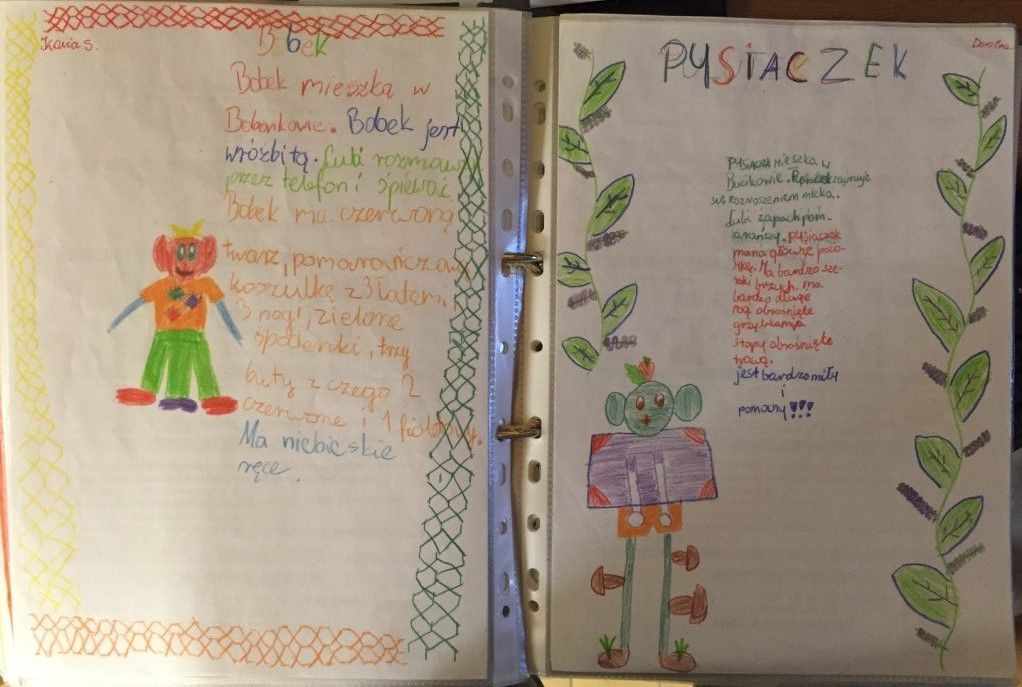 Kania S.
Bobek
Bobek mieszka w
Bobonkowie. Bobek jest
wróżbitą. Lubi rozmawy
przez telefon i śpiewać
Bobek ma czerwoną
twarz, pomarańczową
koszulkę z 3 łatami,
3 nogi, zielone
spodenki, trzy
buty z czego 2
czerwone i 1 fioletowy.
Ma niebieskie
ręce.
Dorotka
PYSIACZEK
Pysiaczek mieszka w
Buziakowie. Pysiaczek zajmuje
się roznoszeniem mleka.
Lubi zapach pom-
arańczy. Pysiaczek
ma na główce papry-
kę. Ma bardzo sze-
roki brzuch. ma
bardzo długie
nogi obrośnięte
grzybkami
stopy obrośnięte
trawą.
jest bardzo miły
i
pomocny!!!